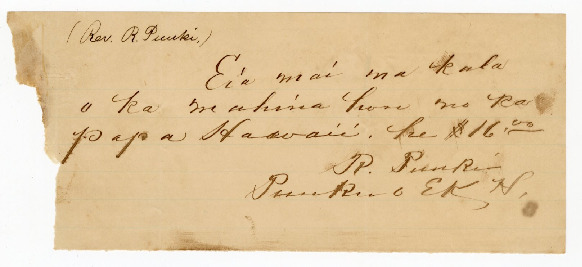 (Rev. R. Puuki.)
Eia mai na kala
o ka mahina hou no ka
papa Hawaii. he $16.00
R. Puuki
Puuku o EK N.